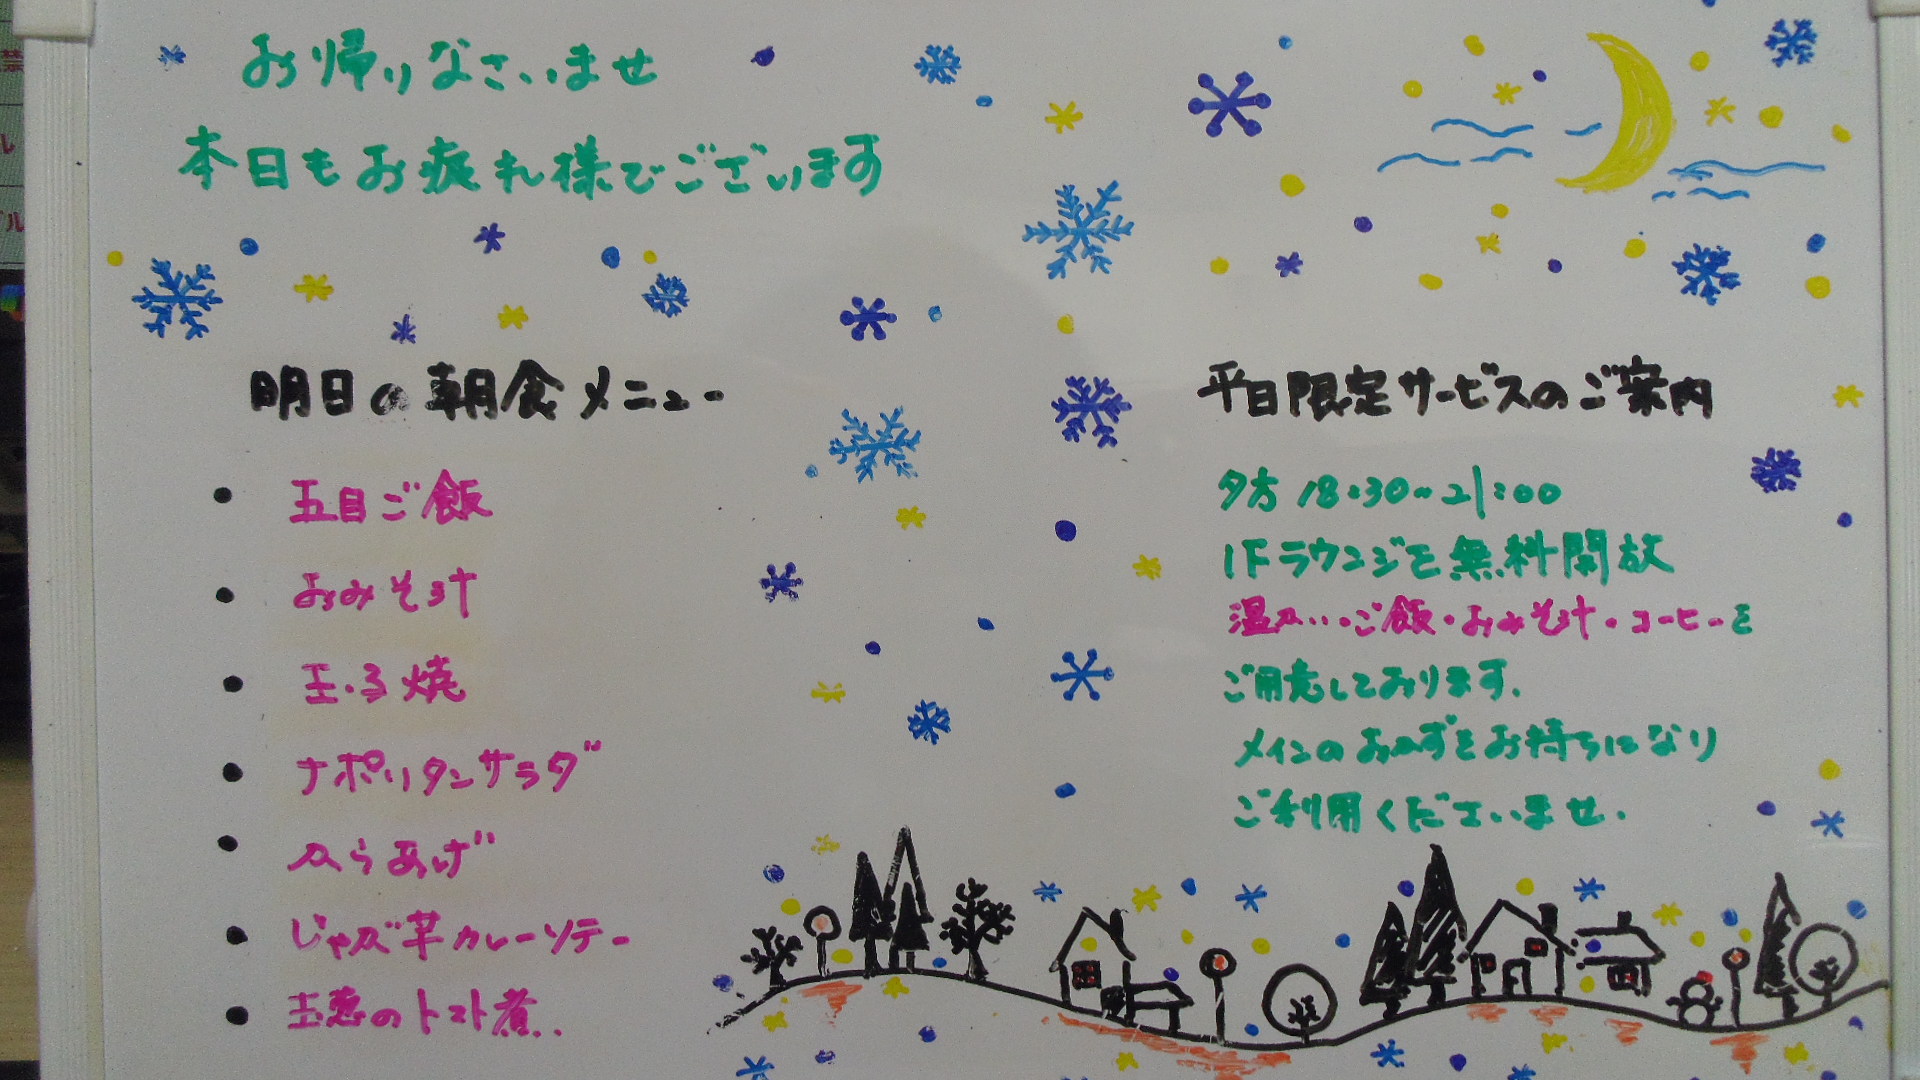 お帰りなさいませ
本日もお疲れ様でございます
明日の朝食メニュー
五目ご飯
おみそ汁
玉子焼
ナポリタンサラダ
からあげ
じゃが芋カレーソテー
玉葱のトマト煮
平日限定サービスのご案内
夕方 18:30~21:00
1Fラウンジを無料開放
温かいご飯・おみそ汁・コーヒーを
ご用意しております.
メインのおかずをお持ちになり
ご利用くださいませ.